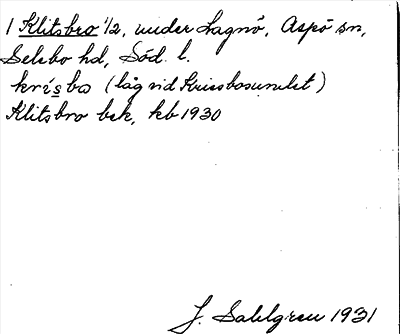 1 Klitsbro 1/2, under Lagnö, Aspö sn,
Selebo hd, Söd. l.
krísbo (låg vid Krissbosundet)
Klitsbro bek, kb 1930
J. Sahlgren 1931